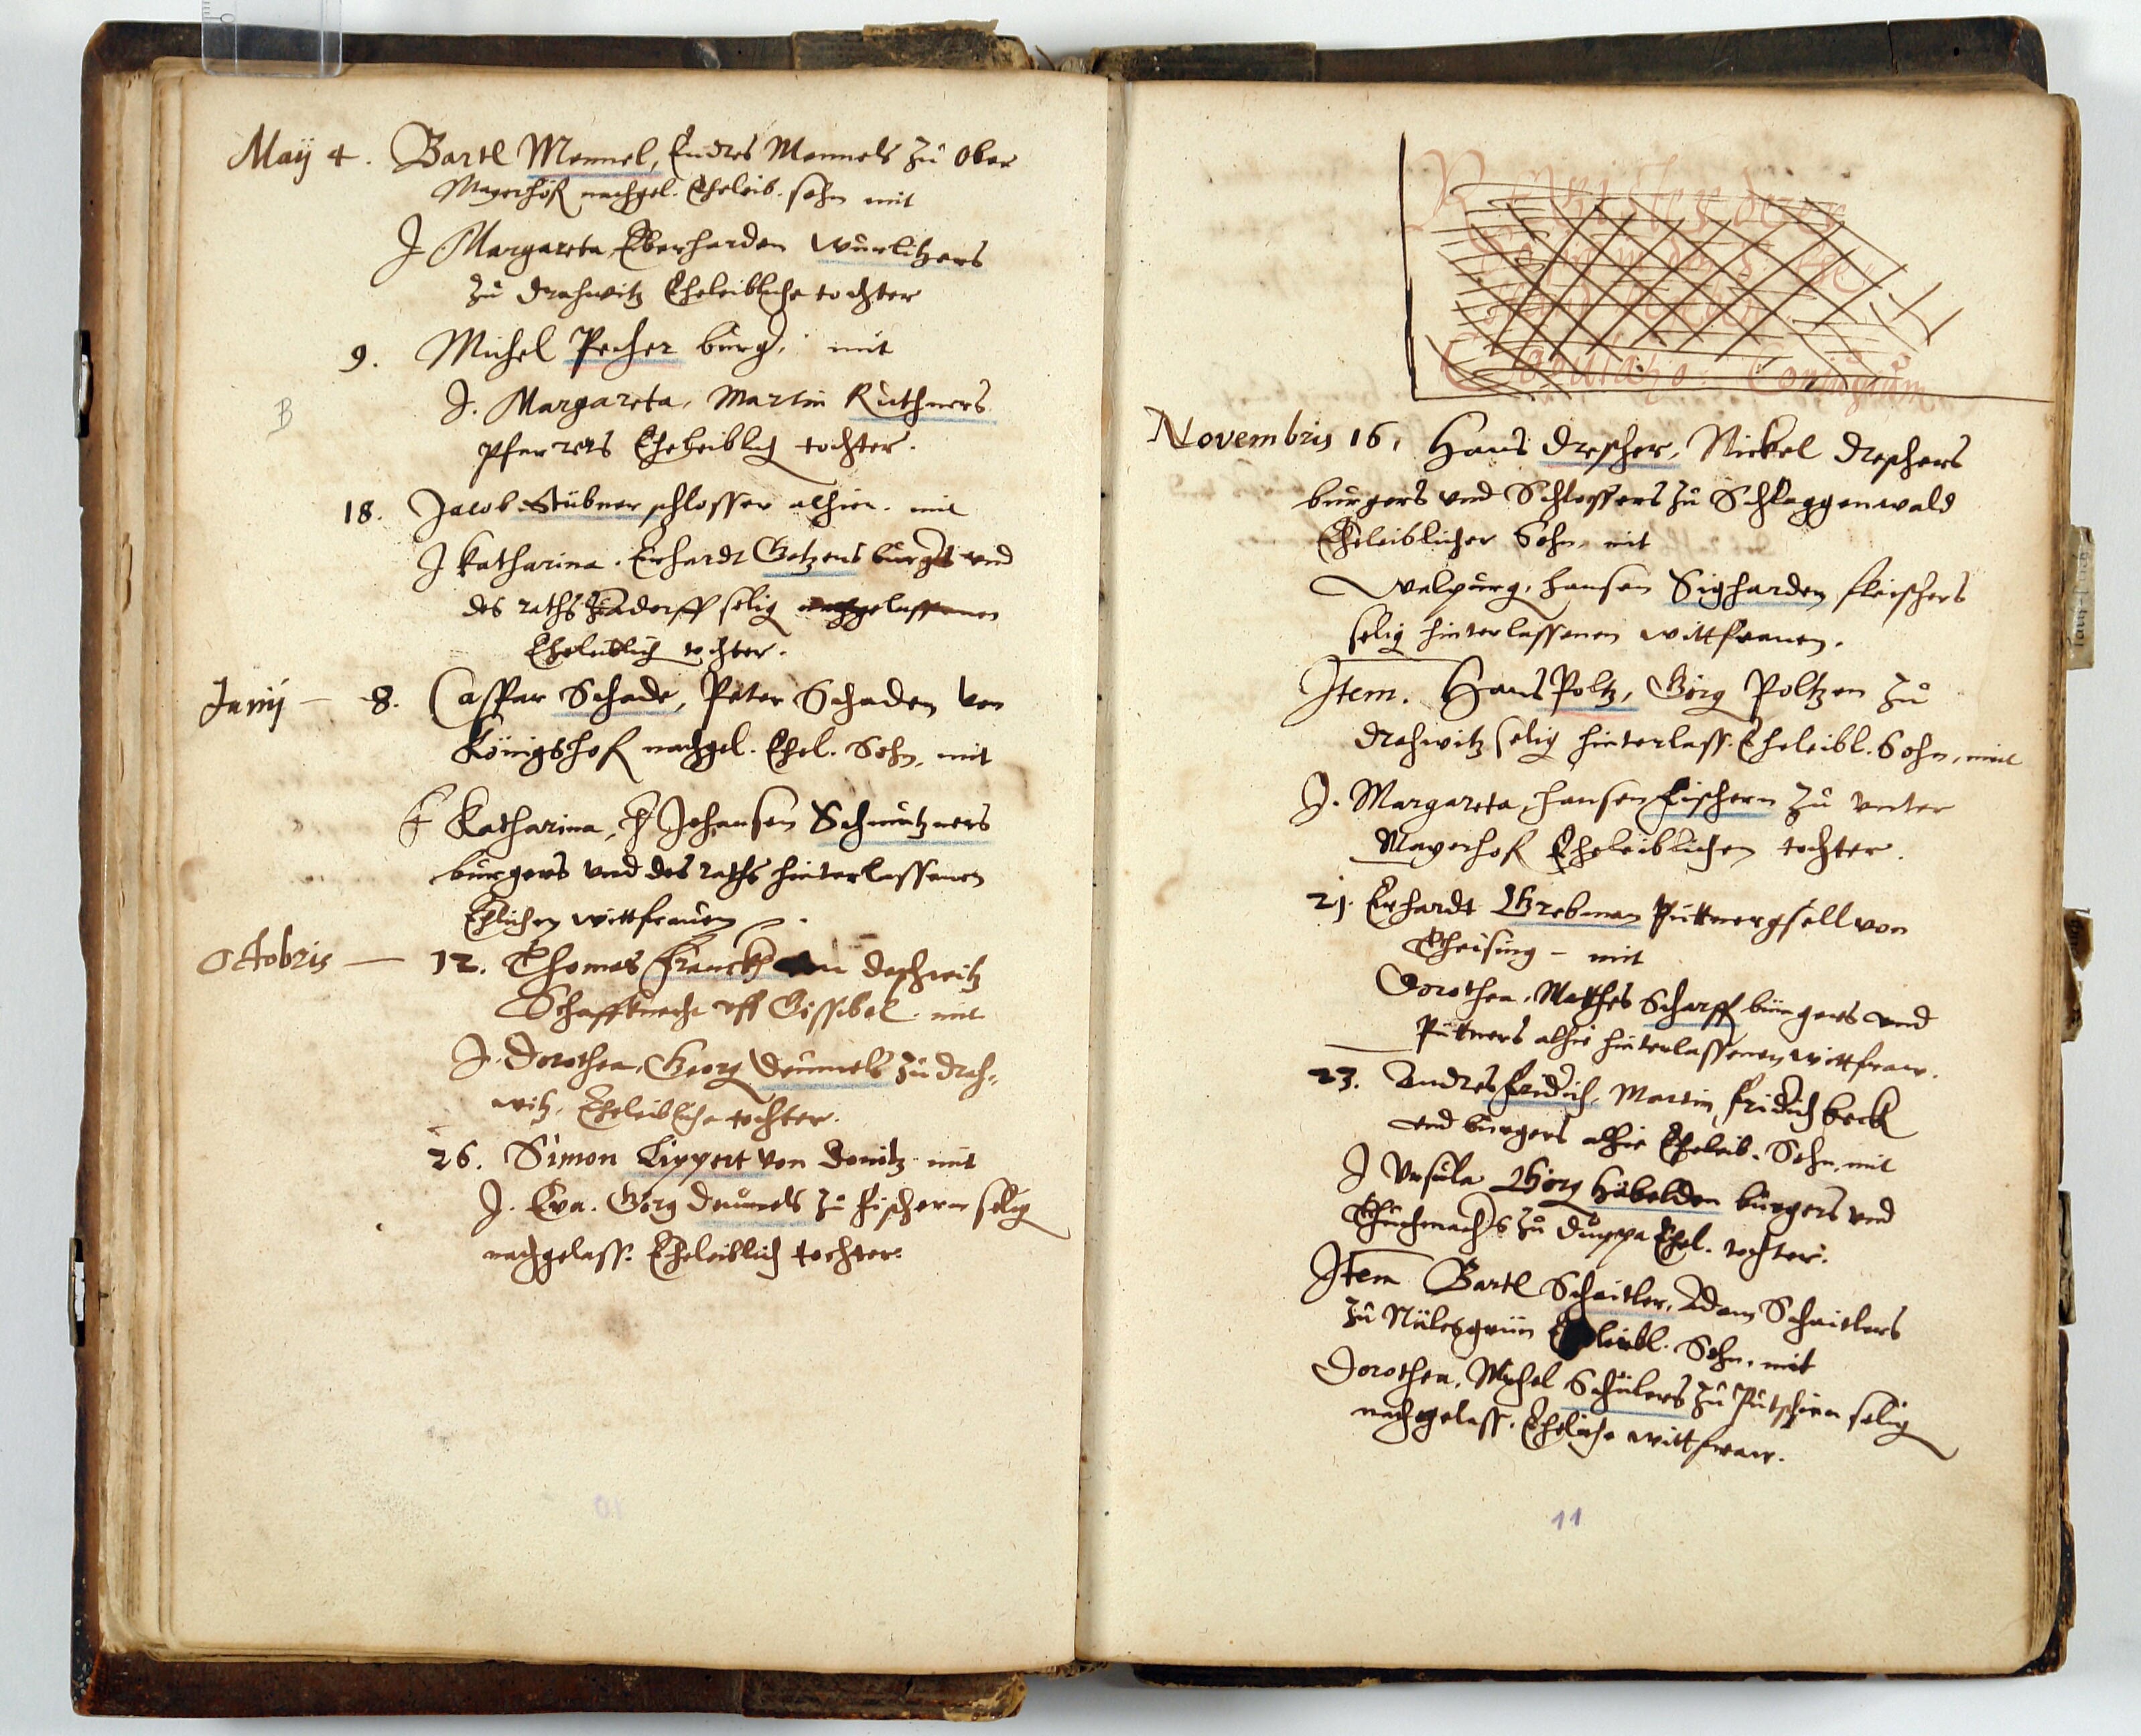 Maÿ 4. Bartl Mennel, Endres Mennels zu Ober
Mayerhoff nachgel. Eheleib. sohn mit
J Margareta Eberharden Wurlitzers
zu Drahwitz Eheleibliche tochter
9. Michel Pecher burg. mit
B
J. Margareta, Martin Ruthners
pfarrers Eheleiblich tochter.
18. Jacob Stübner schlosser alhier. mit
J Katharina. Erhardt Götzens burgers vnd
des raths selig nachgelassenen
Eheleiblich tochter.
Junÿ — 8. Caspar Schade, Peter Schaden von
Königshoff nachgel. Ehel. Sohn, mit
F Katharina, H Johansen Schmützners
burgers vnd des raths hinterlassenen
Ehlichen wittfrauen.
Octobris — 12. Thomas Franck von Daschwitz
Schaffknecht vff Gissibel. mit
J. Dorothea, Georg Deumels zu Drah-
witz, Eheleibliche tochter.
26. Simon Lippert von Donitz mit
J. Eva. Görg Deumels zu Fischern selig
nachgelass. Eheleiblich tochter.
10
Register derer
Copulatio Coniugum
Novembris 16. Hans Drescher, Nickel Dreschers
burgers vnd Schlossers zu Schlaggenwald
Eheleiblicher Sohn, mit
Walpurg, Hansen Sigharden fleischers
selig hinterlassenen wittfrauen.
Item. Hans Poltz, Görg Poltzen zu
Drahwitz selig hinterlass. Eheleibl. Sohn, mit
J. Margareta, Hansen Fischern zu Vnter
Mayerhoff Eheleiblichen tochter.
21. Erhardt Grebman Püttnergsell von
Theusing – mit
Dorothea, Matthes Scharff bürgers vnd
Püttners alhie hinterlassenen wittfraw.
23. Andres Fridrich, Martin Fridrich beck
vnd burgers alhie Eheleib. Sohn, mit
J Vrsula Görg Habelden bürgers vnd
Thuchmachers zu Duppa Ehel. tochter.
Item Bartl Schaitler, Adam Schaitlers
zu Nülesgrün Eheleibl. Sohn. mit
Dorothea, Michel Schülers zu Putschirn selig
nachgelass. Eheliche wittfraw.
11